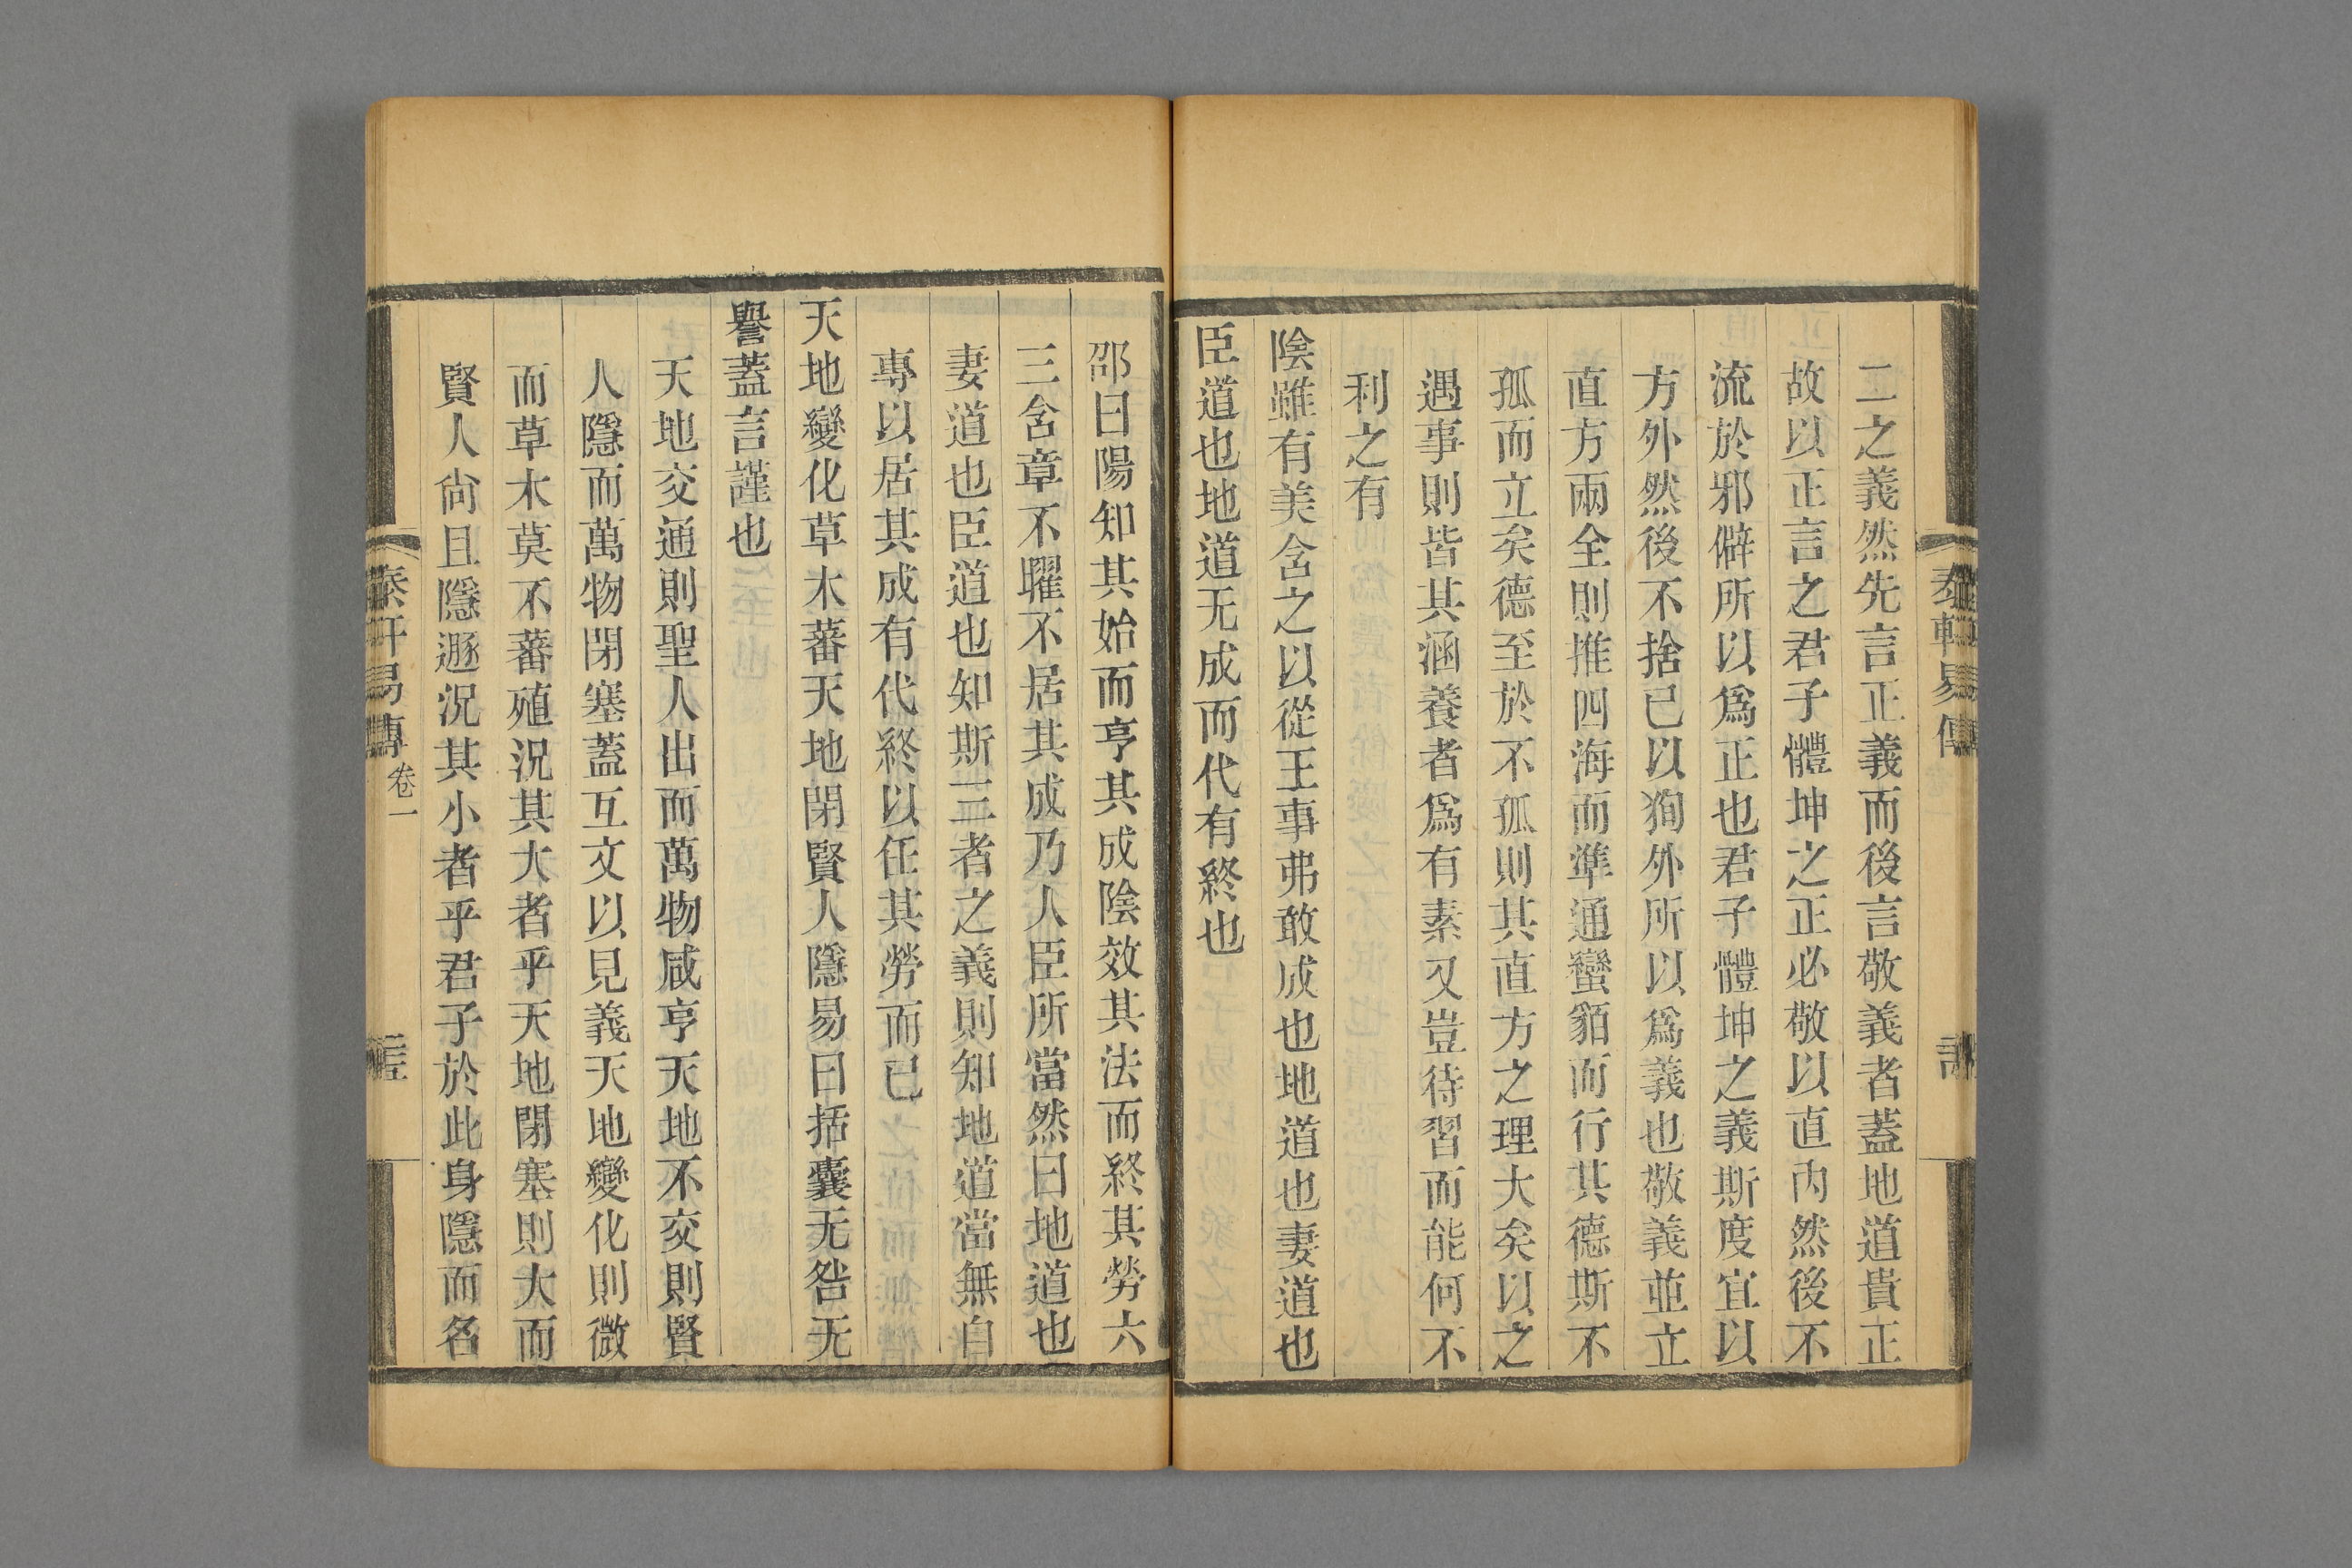 二之義然先言正義而後言敬義者蓋地道貴正
故以正言之君子體坤之正必敬以直內然後不
流於邪僻所以爲正也君子體坤之義斯度宜以
方外然後不捨已以狥外所以爲義也敬義並立
直方兩全則推四海而準通蠻貊而行其德斯不
孤而立矣德至於不孤則其直方之理大矣以之
遇事則皆其涵養者爲有素又豈待習而能何不
利之有
陰雖有美含之以從王事弗敢成也地道也妻道也
臣道也地道无成而代有終也
邵曰陽知其始而亨其成陰效其法而終其勞六
三含章不曜不居其成乃人臣所當然曰地道也
妻道也臣道也知斯三者之義則知地道當無自
專以居其成有代終以任其勞而已
天地變化草木蕃天地閉賢人隱易曰括囊无咎无
譽蓋言謹也
天地交通則聖人出而萬物咸亨天地不交則賢
人隱而萬物閉塞蓋互文以見義天地變化則微
而草木莫不蕃殖況其大者乎天地閉塞則大而
賢人尙且隱遯況其小者乎君子於此身隱而名
泰軒易傳 卷一